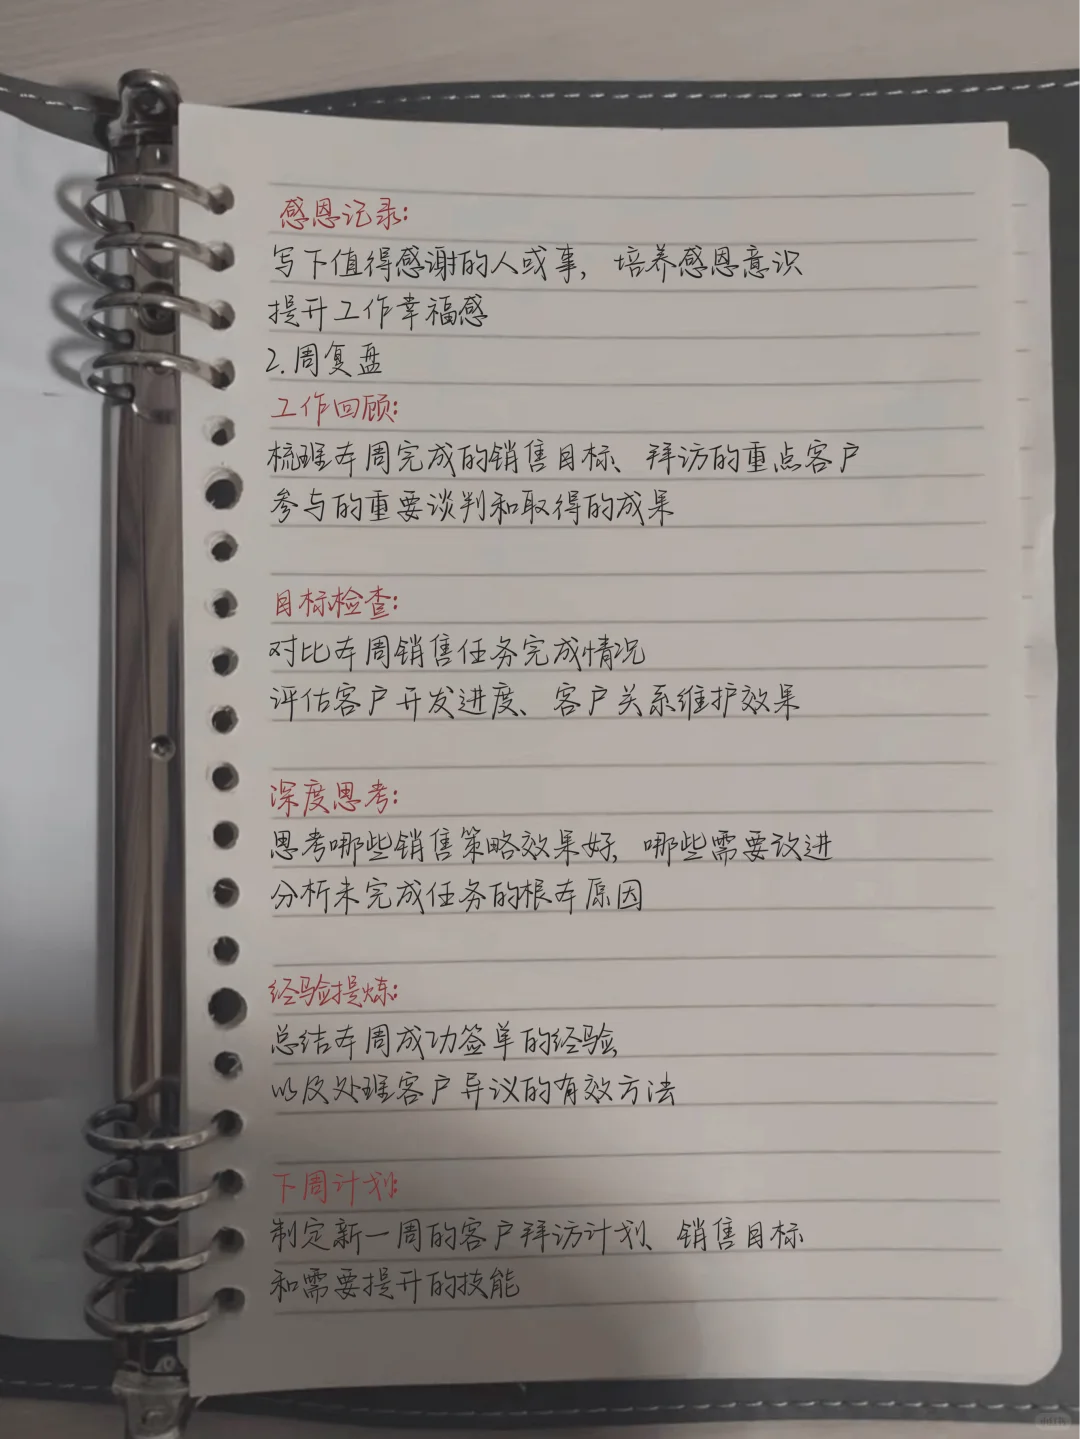 感恩记录:
写下值得感谢的人或事, 培养感恩意识
提升工作幸福感
2.周复盘
工作回顾:
梳理本周完成的销售目标、拜访的重点客户
参与的重要谈判和取得的成果
目标检查:
对比本周销售任务完成情况
评估客户开发进度、客户关系维护效果
深度思考:
思考哪些销售策略效果好, 哪些需要改进
分析未完成任务的根本原因
经验提炼:
总结本周成功签单的经验,
以及处理客户异议的有效方法
下周计划:
制定新一周的客户拜访计划、销售目标
和需要提升的技能